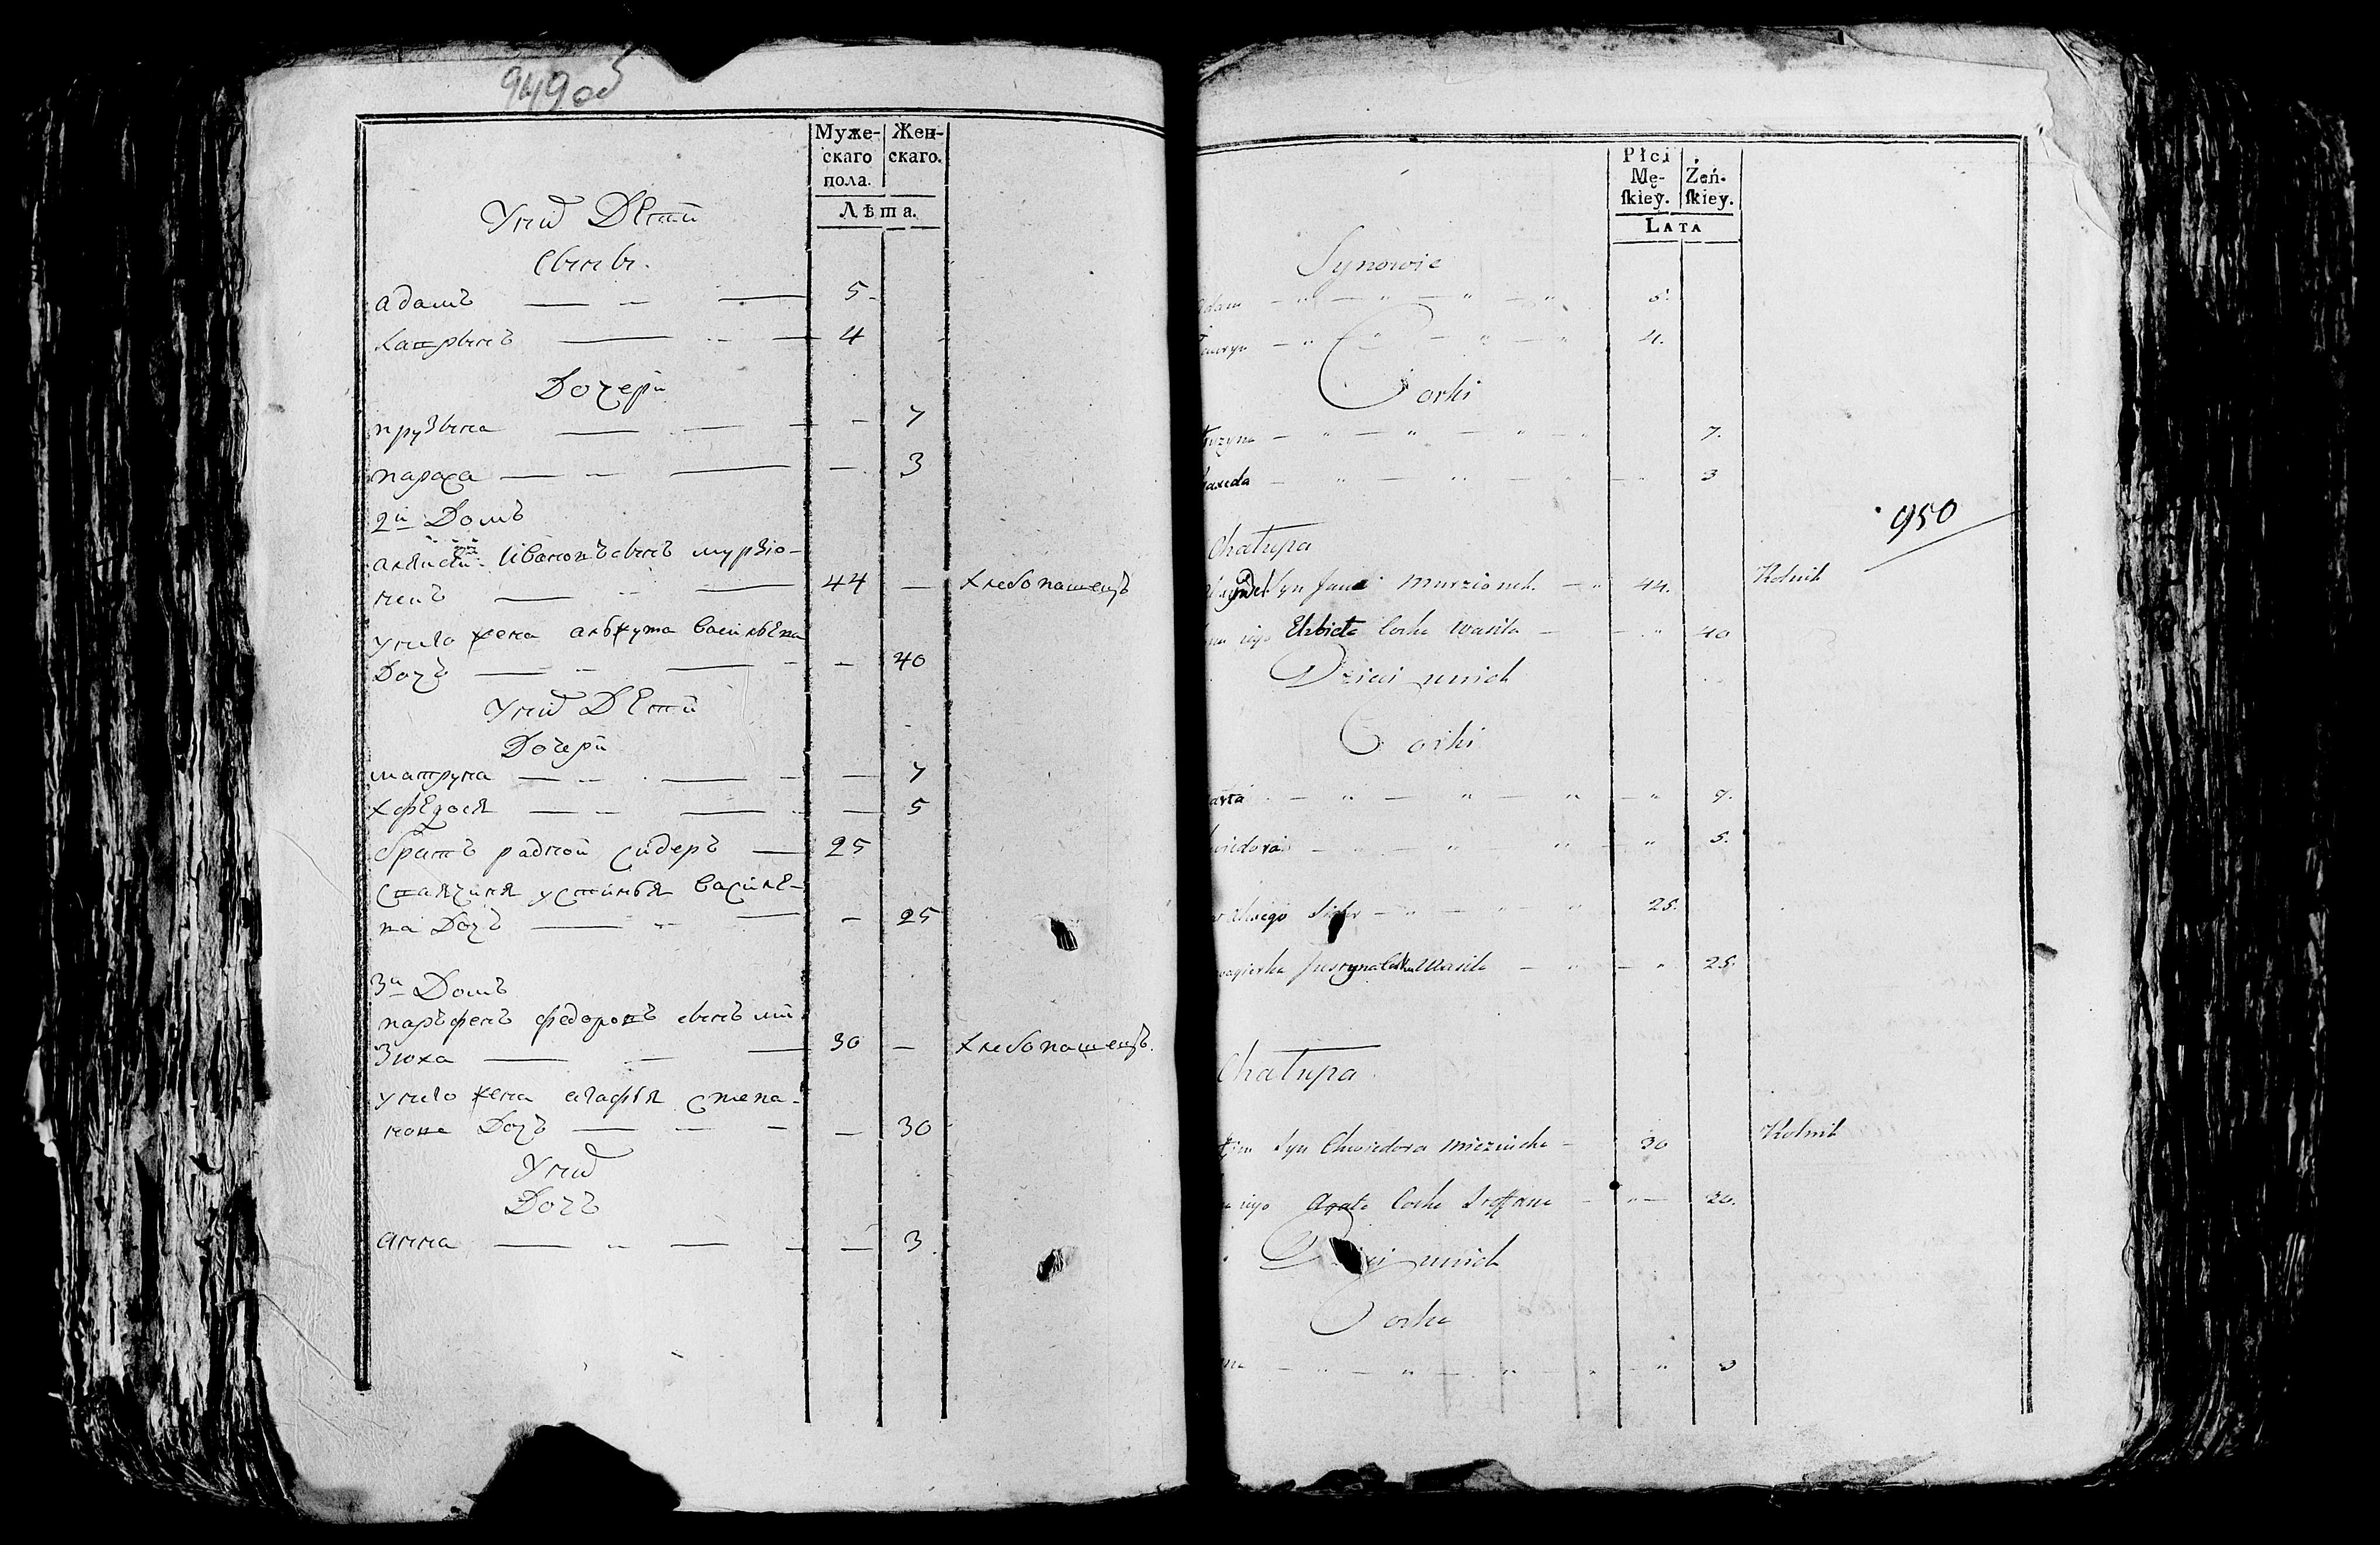 949об
Муже-
скаго
пола.
Жен-
скаго.
Лѣта.
Унiихъ Дѣти
Сыны.
адамъ 5
каправнъ 4
Дочери
прузына 7
параса 3
2й Домъ
Ивановъ сынъ мурзіо-
нкъ 44 — хлебопашецъ
унего жена альжута василѣва
Дочъ 40
Унихъ Дѣти
Дочери
матруна 7
хфедося 5
братъ радной сидеръ 25
устинья василѣ-
ва Дочъ 25
3й Домъ
паръфенъ федоровъ сынъ ми-
зюха 30 — хлебопашецъ.
унего жена агафья степа-
нова Дочъ 30
Унихъ
Дочъ
анна 3
Płci
Mę-
ſkiey.
Żeń-
ſkiey.
LATA
Synowie
5.
4.
Corki
7.
3
950
Chałupa
Syn Jana Murzionek 44. Rolnik
iego Elzbieta Corka Wasila 40
Dzieci unich
Corki
7.
5.
Sidor 25.
Justyna Corka Wasila 25.
Chałupa
Syn Chwiedora Mieziucha 30 Rolnik
iego Agata Corka Steffana 30.
Dzieci unich
Corka
3